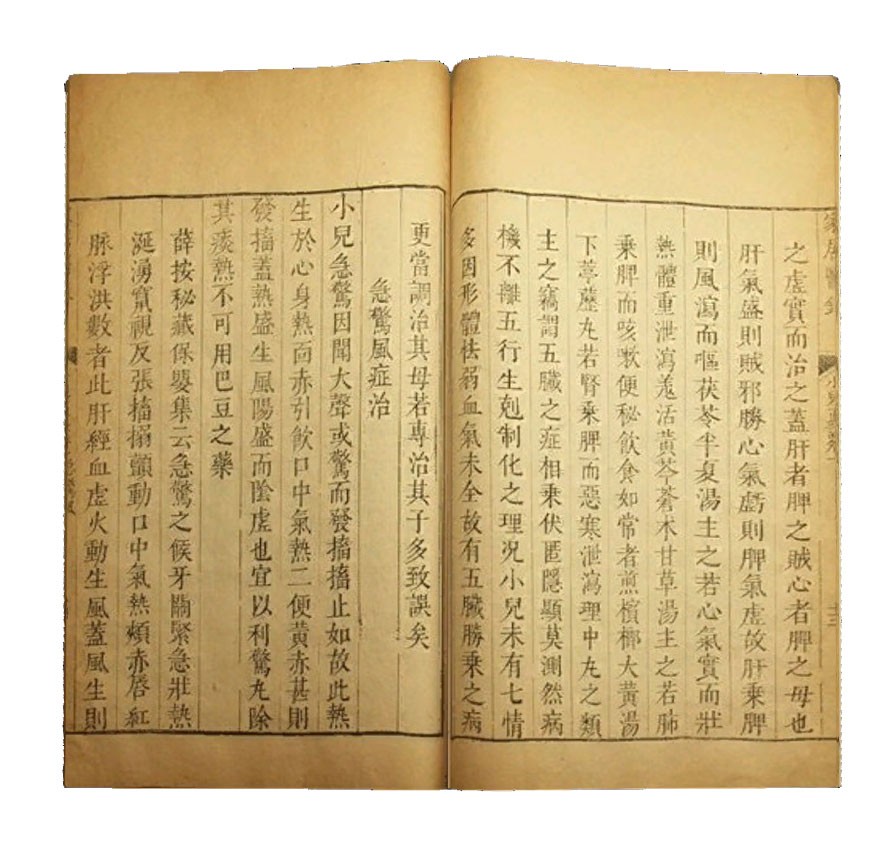 之虛實而治之蓋肝者脾之賊心者脾之母也
肝氣盛則賊邪勝心氣虧則脾氣虛故肝乘脾
則風瀉而嘔茯苓半夏湯主之若心氣實而壯
熱體重泄瀉羗活黃芩蒼朮甘草湯主之若肺
乘脾而咳嗽便秘飲食如常者煎檳榔大黃湯
下葶藶丸若腎乘脾而惡寒泄瀉理中丸之類
主之竊謂五臟之症相乘伏匿隱顯莫測然病
機不離五行生剋制化之理况小兒未有七情
多因形體怯弱血氣未全故有五臟勝乘之病
更當調治其母若專治其子多致誤矣
急驚風症治
小兒急驚因聞大聲或驚而發搐搐止如故此熱
生於心身熱面赤引飲口中氣熱二便黃赤甚則
發搐蓋熱盛生風陽盛而陰虛也宜以利驚丸除
其痰熱不可用巴豆之藥
薛按秘藏保嬰集云急驚之候牙關緊急壯熱
涎湧竄視反張搐搦顫動口中氣熱頰赤唇紅
脉浮洪數者此肝經血虛火動生風蓋風生則